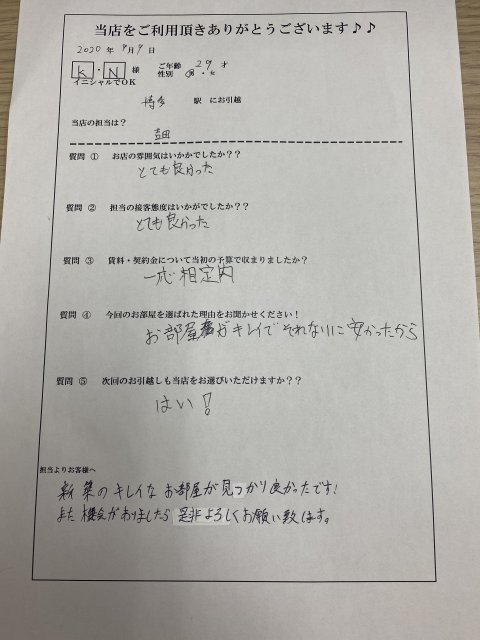 当店をご利用頂きありがとうございます♪♪
2020 年 9月 9 日
K・N 様 ご年齢 29 才
イニシャルでOK 性別 男・女
博多 駅 にお引越
当店の担当は?
吉田
質問 ① お店の雰囲気はいかかでしたか??
とても良かった
質問 ② 担当の接客態度はいかがでしたか??
とても良かった
質問 ③ 賃料・契約金について当初の予算で収まりましたか?
一応相定内
質問 ④ 今回のお部屋を選ばれた理由をお聞かせください!
お部屋がキレイでそれなりに安かったから
質問 ⑤ 次回のお引越しも当店をお選びいただけますか??
はい!
担当よりお客様へ
新築のキレイなお部屋が見つかり良かったです!
また機会がありましたら是非よろしくお願い致します。